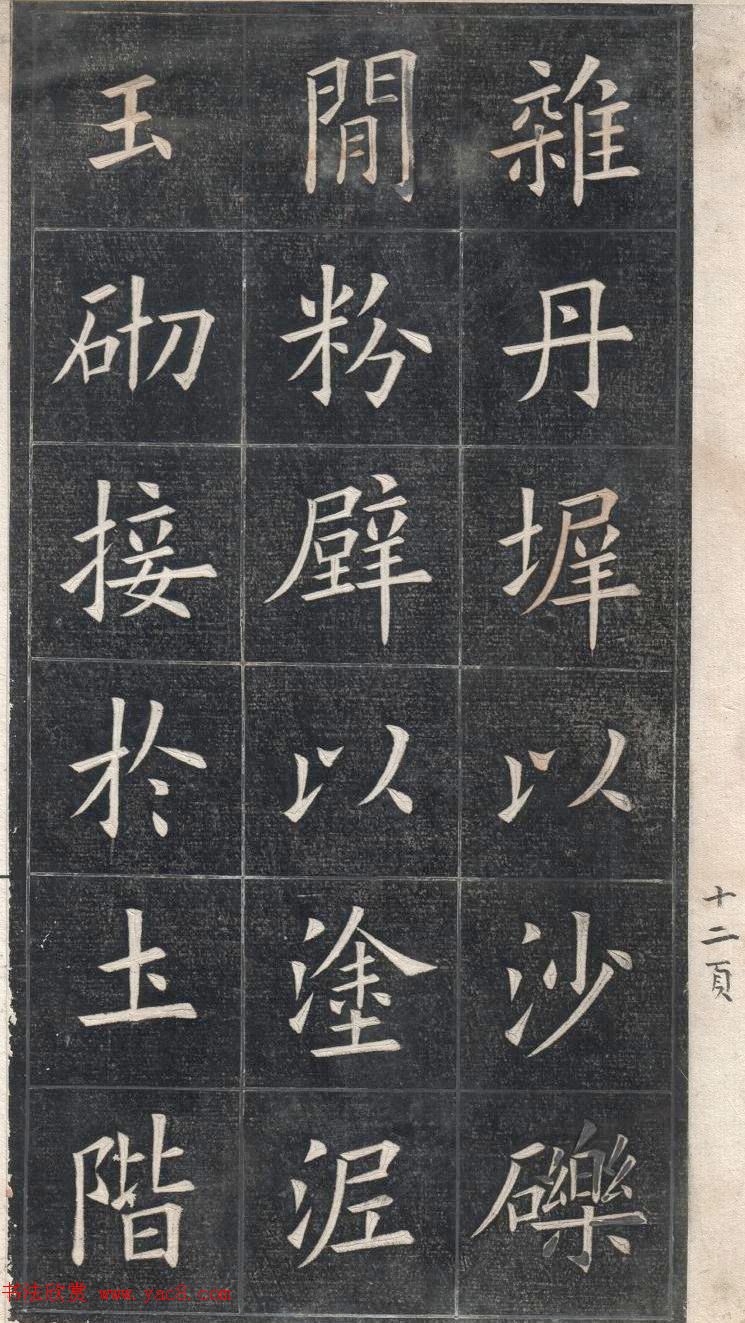 雜丹墀以沙礫
閒粉壁以塗泥
玉砌接於土階
十二頁
书法欣赏 www.yac8.com